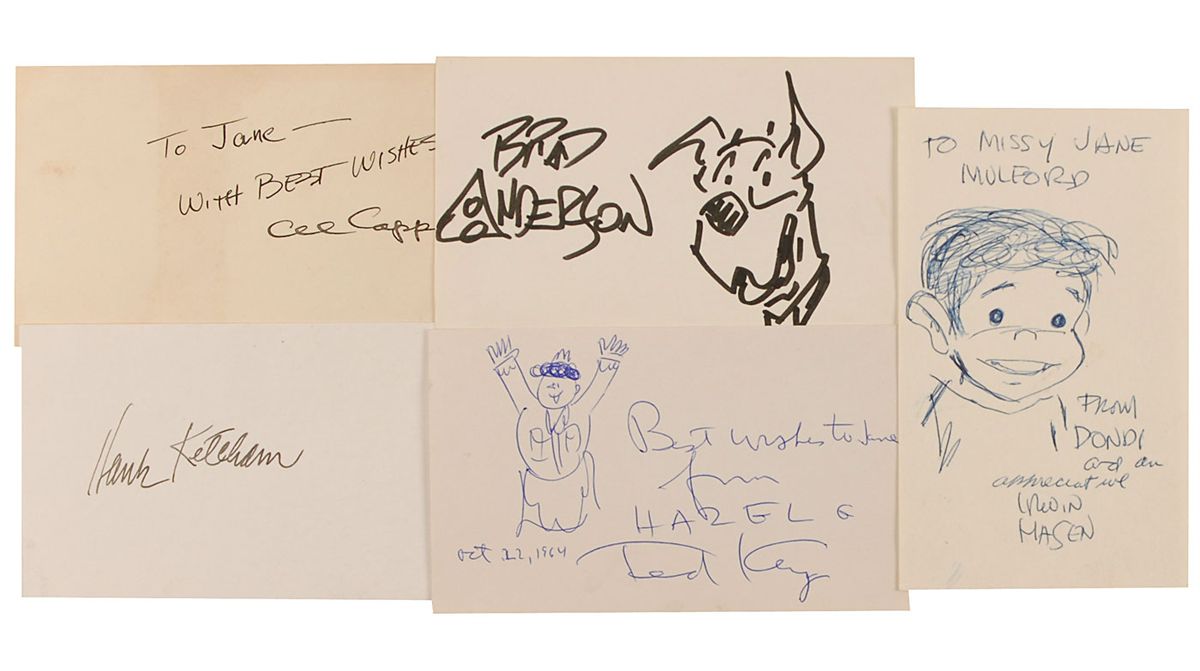 To Jane —
WITH BEST WISHES
Al Capp
BRAD
ANDERSON
TO MISSY JANE
MULFORD
FROM
DONDI
and an
appreciative
IRWIN
HASEN
Hank Ketcham
Best wishes to Jane
from
HAZEL &
Ted Key
Oct 22, 1964